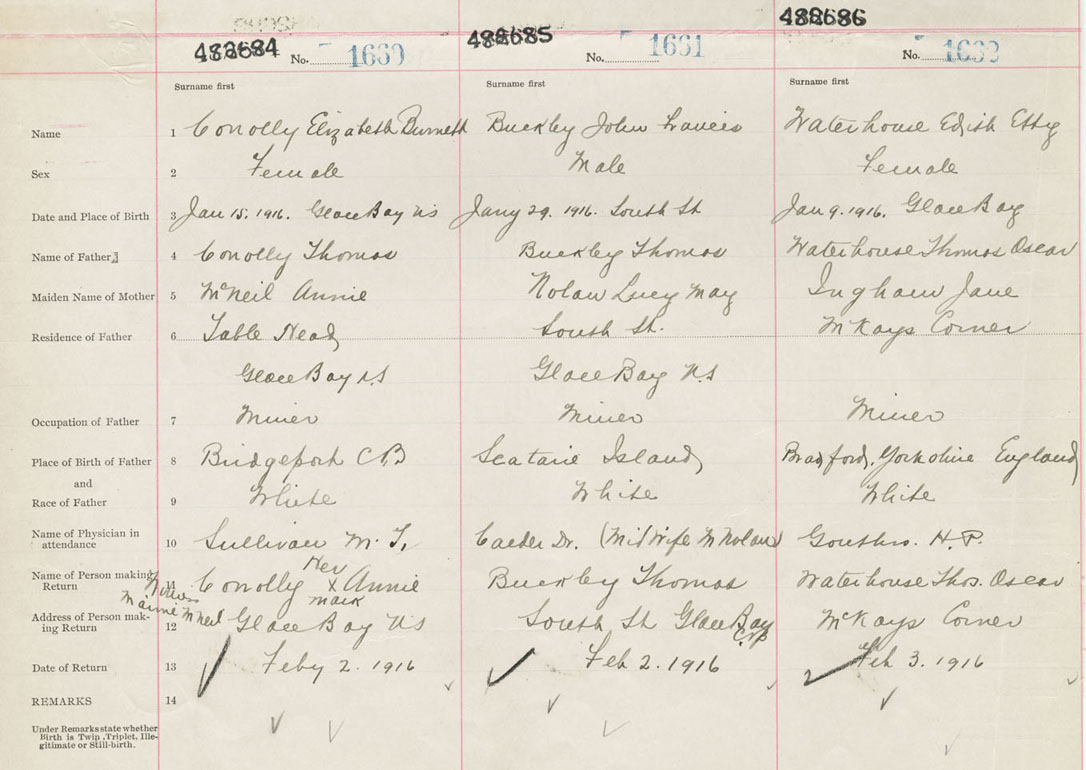 482684 482685 482686
No. 1660 No. 1661 No.
Surname first Surname first Surname first
Name 1 Conolly Elizabeth Burnett Buckley John Francis Waterhouse Edith Etty
Sex 2 Female Male Female
Date and Place of Birth 3 Jan 15. 1916. Glace Bay NS Jany 29. 1916. South St Jan 9. 1916. Glace Bay
Name of Father 4 Conolly Thomas Buckley Thomas Waterhouse Thomas Oscar
Maiden Name of Mother 5 McNeil Annie Nolan Lucy May Ingham Jane
Residence of Father 6 Table Head South St. McKays Corner
Glace Bay N.S Glace Bay N.S
Occupation of Father 7 Miner Miner Miner
Place of Birth of Father 8 Bridgeport C.B Scatarie Island Bradford, Yorkshire England
and
Race of Father 9 White White White
Name of Physician in
attendance 10 Sullivan M. T. Calder Dr. (MidWife M Nolan) Gouthro. H. P.
Name of Person making
Return 11 Conolly Her x mark Annie Buckley Thomas Waterhouse Thos. Oscar
Witness
Mamie McNeil
Address of Person mak-
ing Return 12 Glace Bay NS South St Glace Bay C.B McKays Corner
Date of Return 13 Feby 2. 1916 Feb 2. 1916 Feb 3. 1916
REMARKS 14
Under Remarks state whether
Birth is Twin, Triplet, Ille-
gitimate or Still-birth.